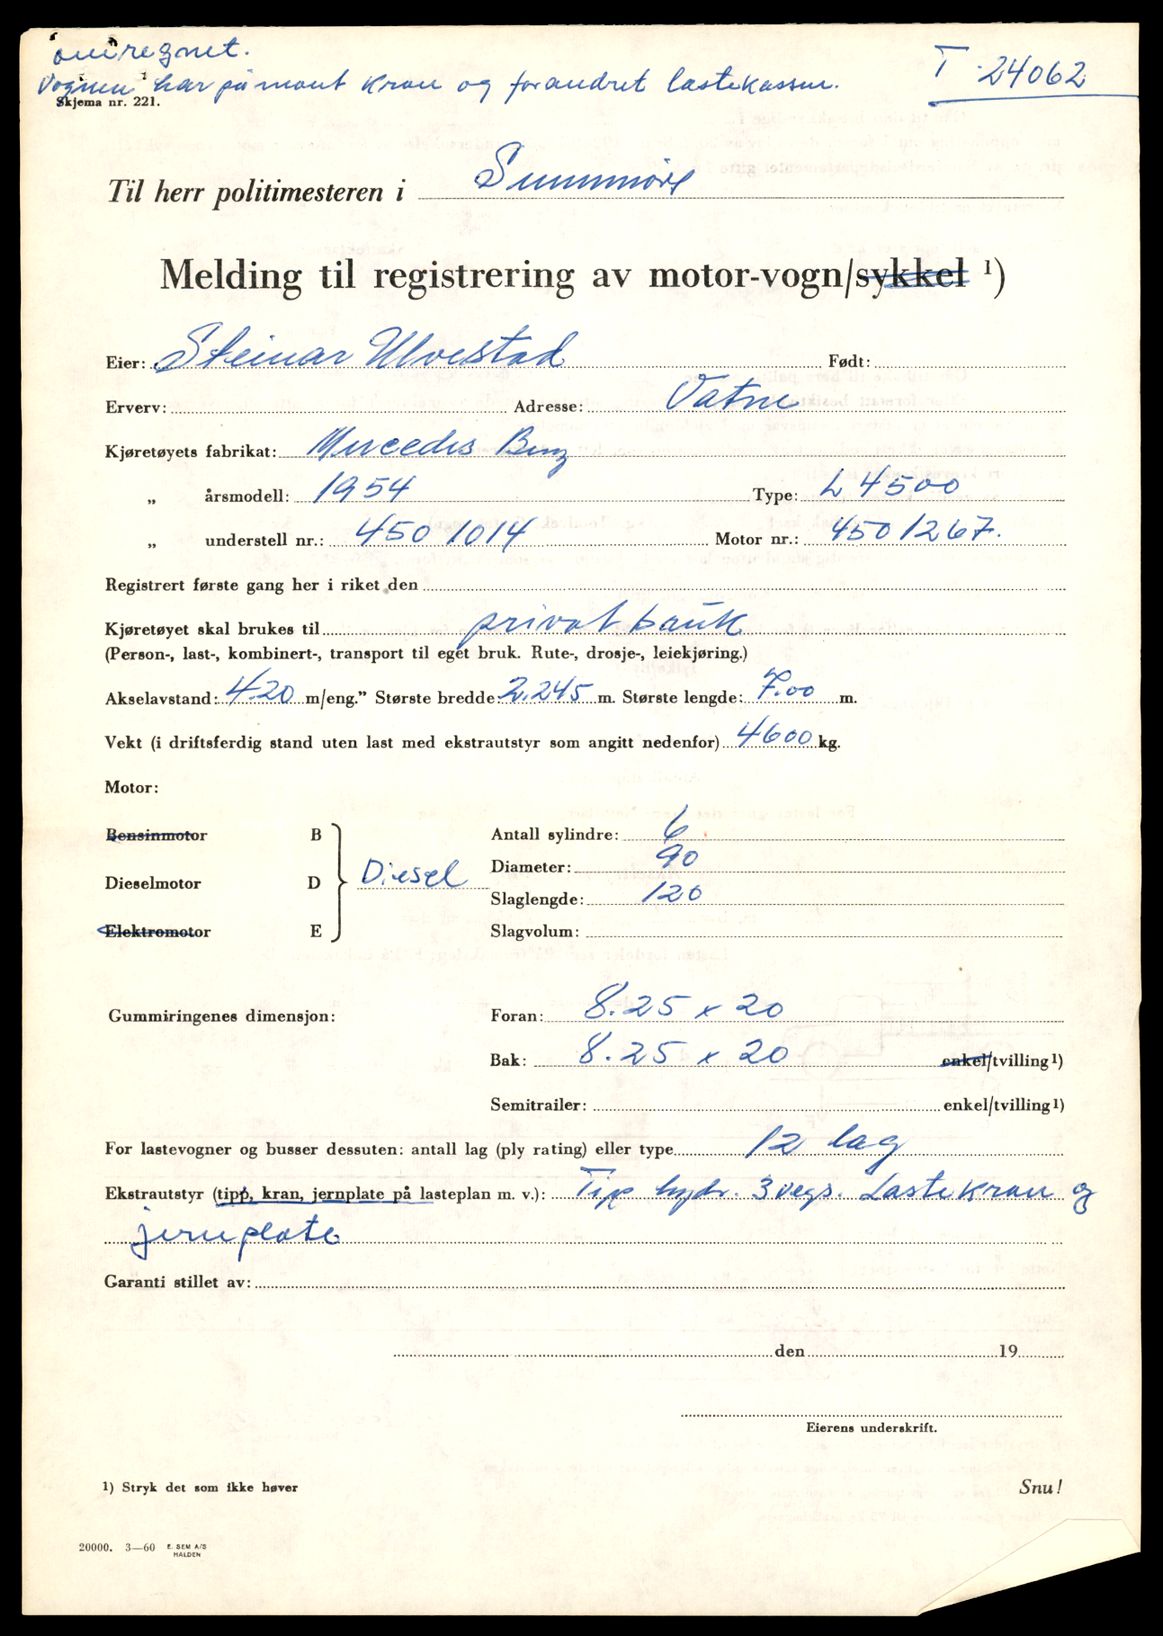 omregnet.
Vognen har påmont kran og forandret lastekassen.
T-24062
Skjema nr. 221.
Til herr politimesteren i Sunnmøre
Melding til registrering av motor-vogn/sykkel ¹)
Eier: Steinar Ulvestad Født:
Erverv: Adresse: Vatne
Kjøretøyets fabrikat: Mercedes Benz
„ årsmodell: 1954 Type: L 4500
„ understell nr.: 450 1014 Motor nr.: 450 1267.
Registrert første gang her i riket den
Kjøretøyet skal brukes til privat bruk
(Person-, last-, kombinert-, transport til eget bruk. Rute-, drosje-, leiekjøring.)
Akselavstand: 4.20 m/eng." Største bredde: 2.245 m. Største lengde: 7.00 m.
Vekt (i driftsferdig stand uten last med ekstrautstyr som angitt nedenfor) 4600 kg.
Motor:
Bensinmotor B Antall sylindre: 6
Diameter: 90
Dieselmotor D Diesel
Slaglengde: 120
Elektromotor E Slagvolum:
Gummiringenes dimensjon: Foran: 8.25 x 20
Bak: 8.25 x 20 enkel/tvilling ¹)
Semitrailer: enkel/tvilling ¹)
For lastevogner og busser dessuten: antall lag (ply rating) eller type 12 lag
Ekstrautstyr (tipp, kran, jernplate på lasteplan m. v.): Tipp hydr. 3 vegs. Lastekran og
jernplate
Garanti stillet av:
den 19
Eierens underskrift.
¹) Stryk det som ikke høver
Snu!
20000. 3—60 E. SEM A/S
HALDEN